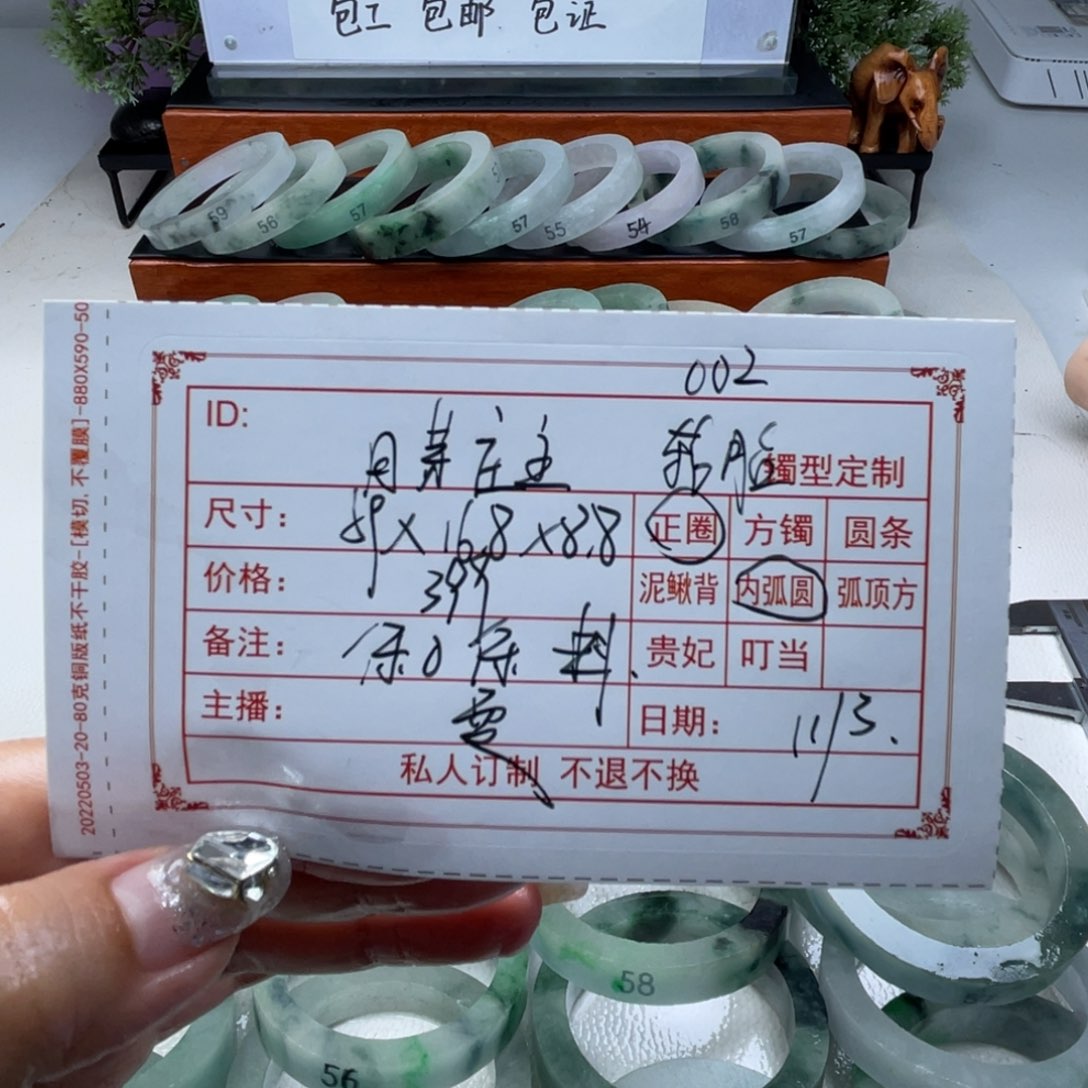 包工 包邮 包证
59 56 57 57 55 54 58 57
20220503-20-80克铜版纸不干胶-[模切,不覆膜]-880X590-50
002
ID: 月芽庄主 镯型定制
尺寸: 59×16.8×8.8 正圈 方镯 圆条
价格: 399 泥鳅背 内弧圆 弧顶方
备注: 贵妃 叮当
主播: 雯 日期: 11/3.
私人订制 不退不换
58
56